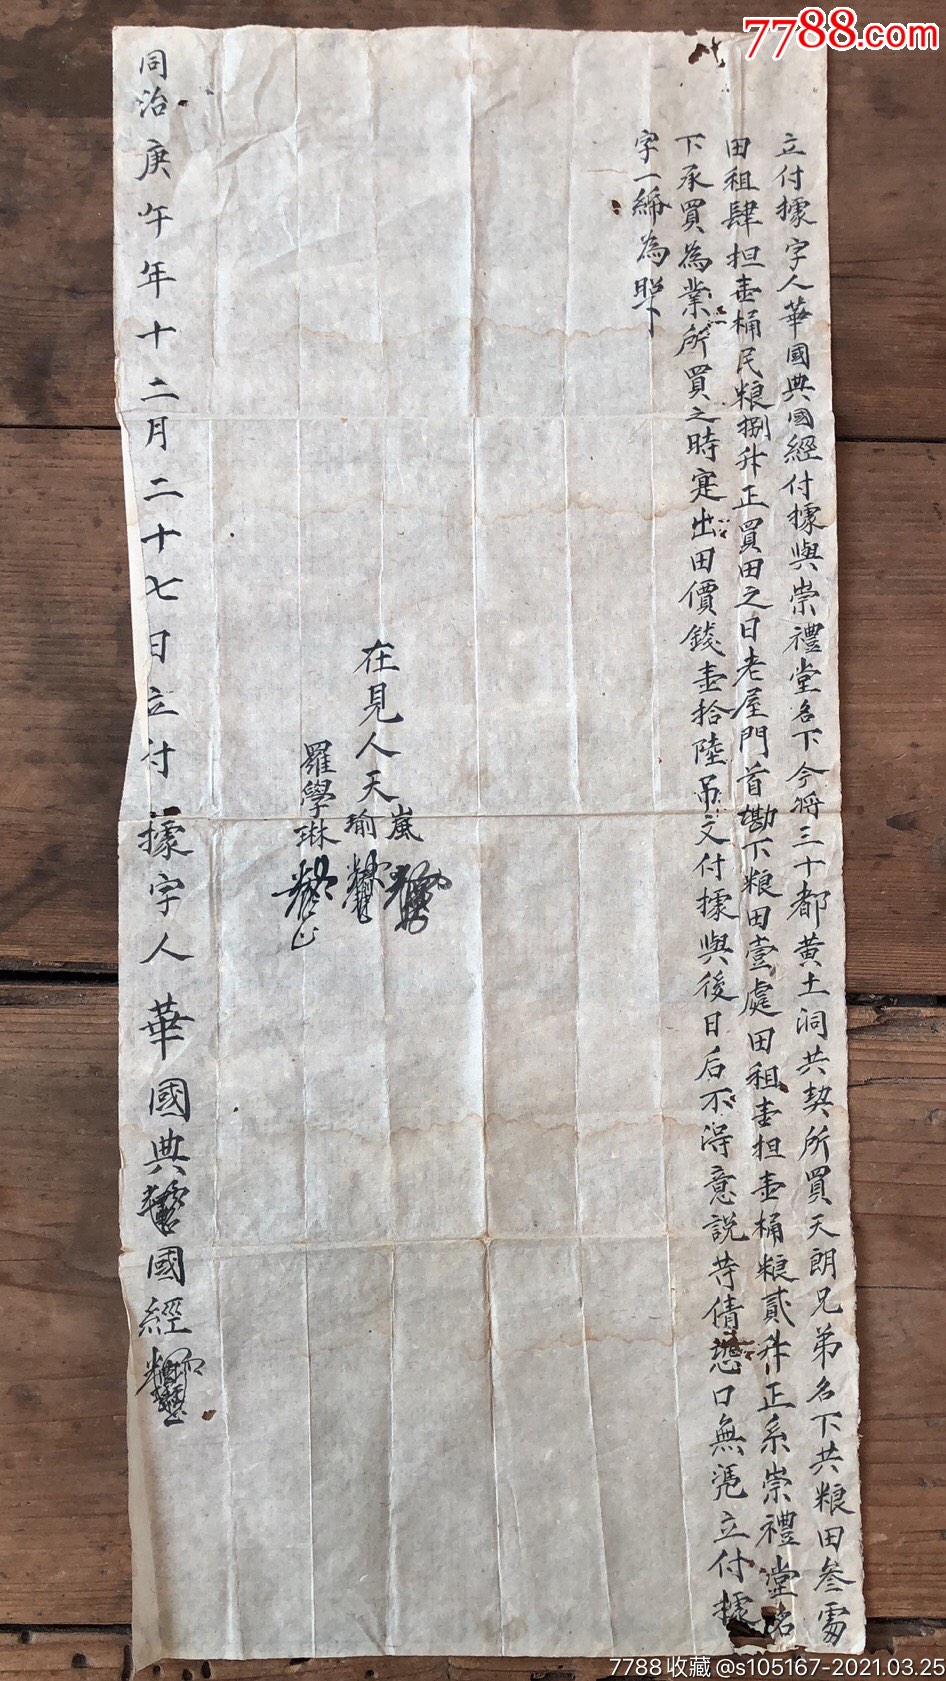 7788.com
立付據字人華國典國經付據與崇禮堂名下今將三十都黄土洞共契所買天朗兄弟名下共粮田叁處
田租肆担壹桶民粮捌升正買田之日老屋門首勘下粮田壹處田租壹担壹桶粮貳升正系崇禮堂名
下承買為業所買之時寔出田價錢壹拾陸吊文付據與後日后不淂意說等情恐口無凴立付據
字一紙為照
在見人天嵐
瑜
羅學琳
同治庚午年十二月二十七日立付據字人華國典國經
7788收藏@s105167-2021.03.25